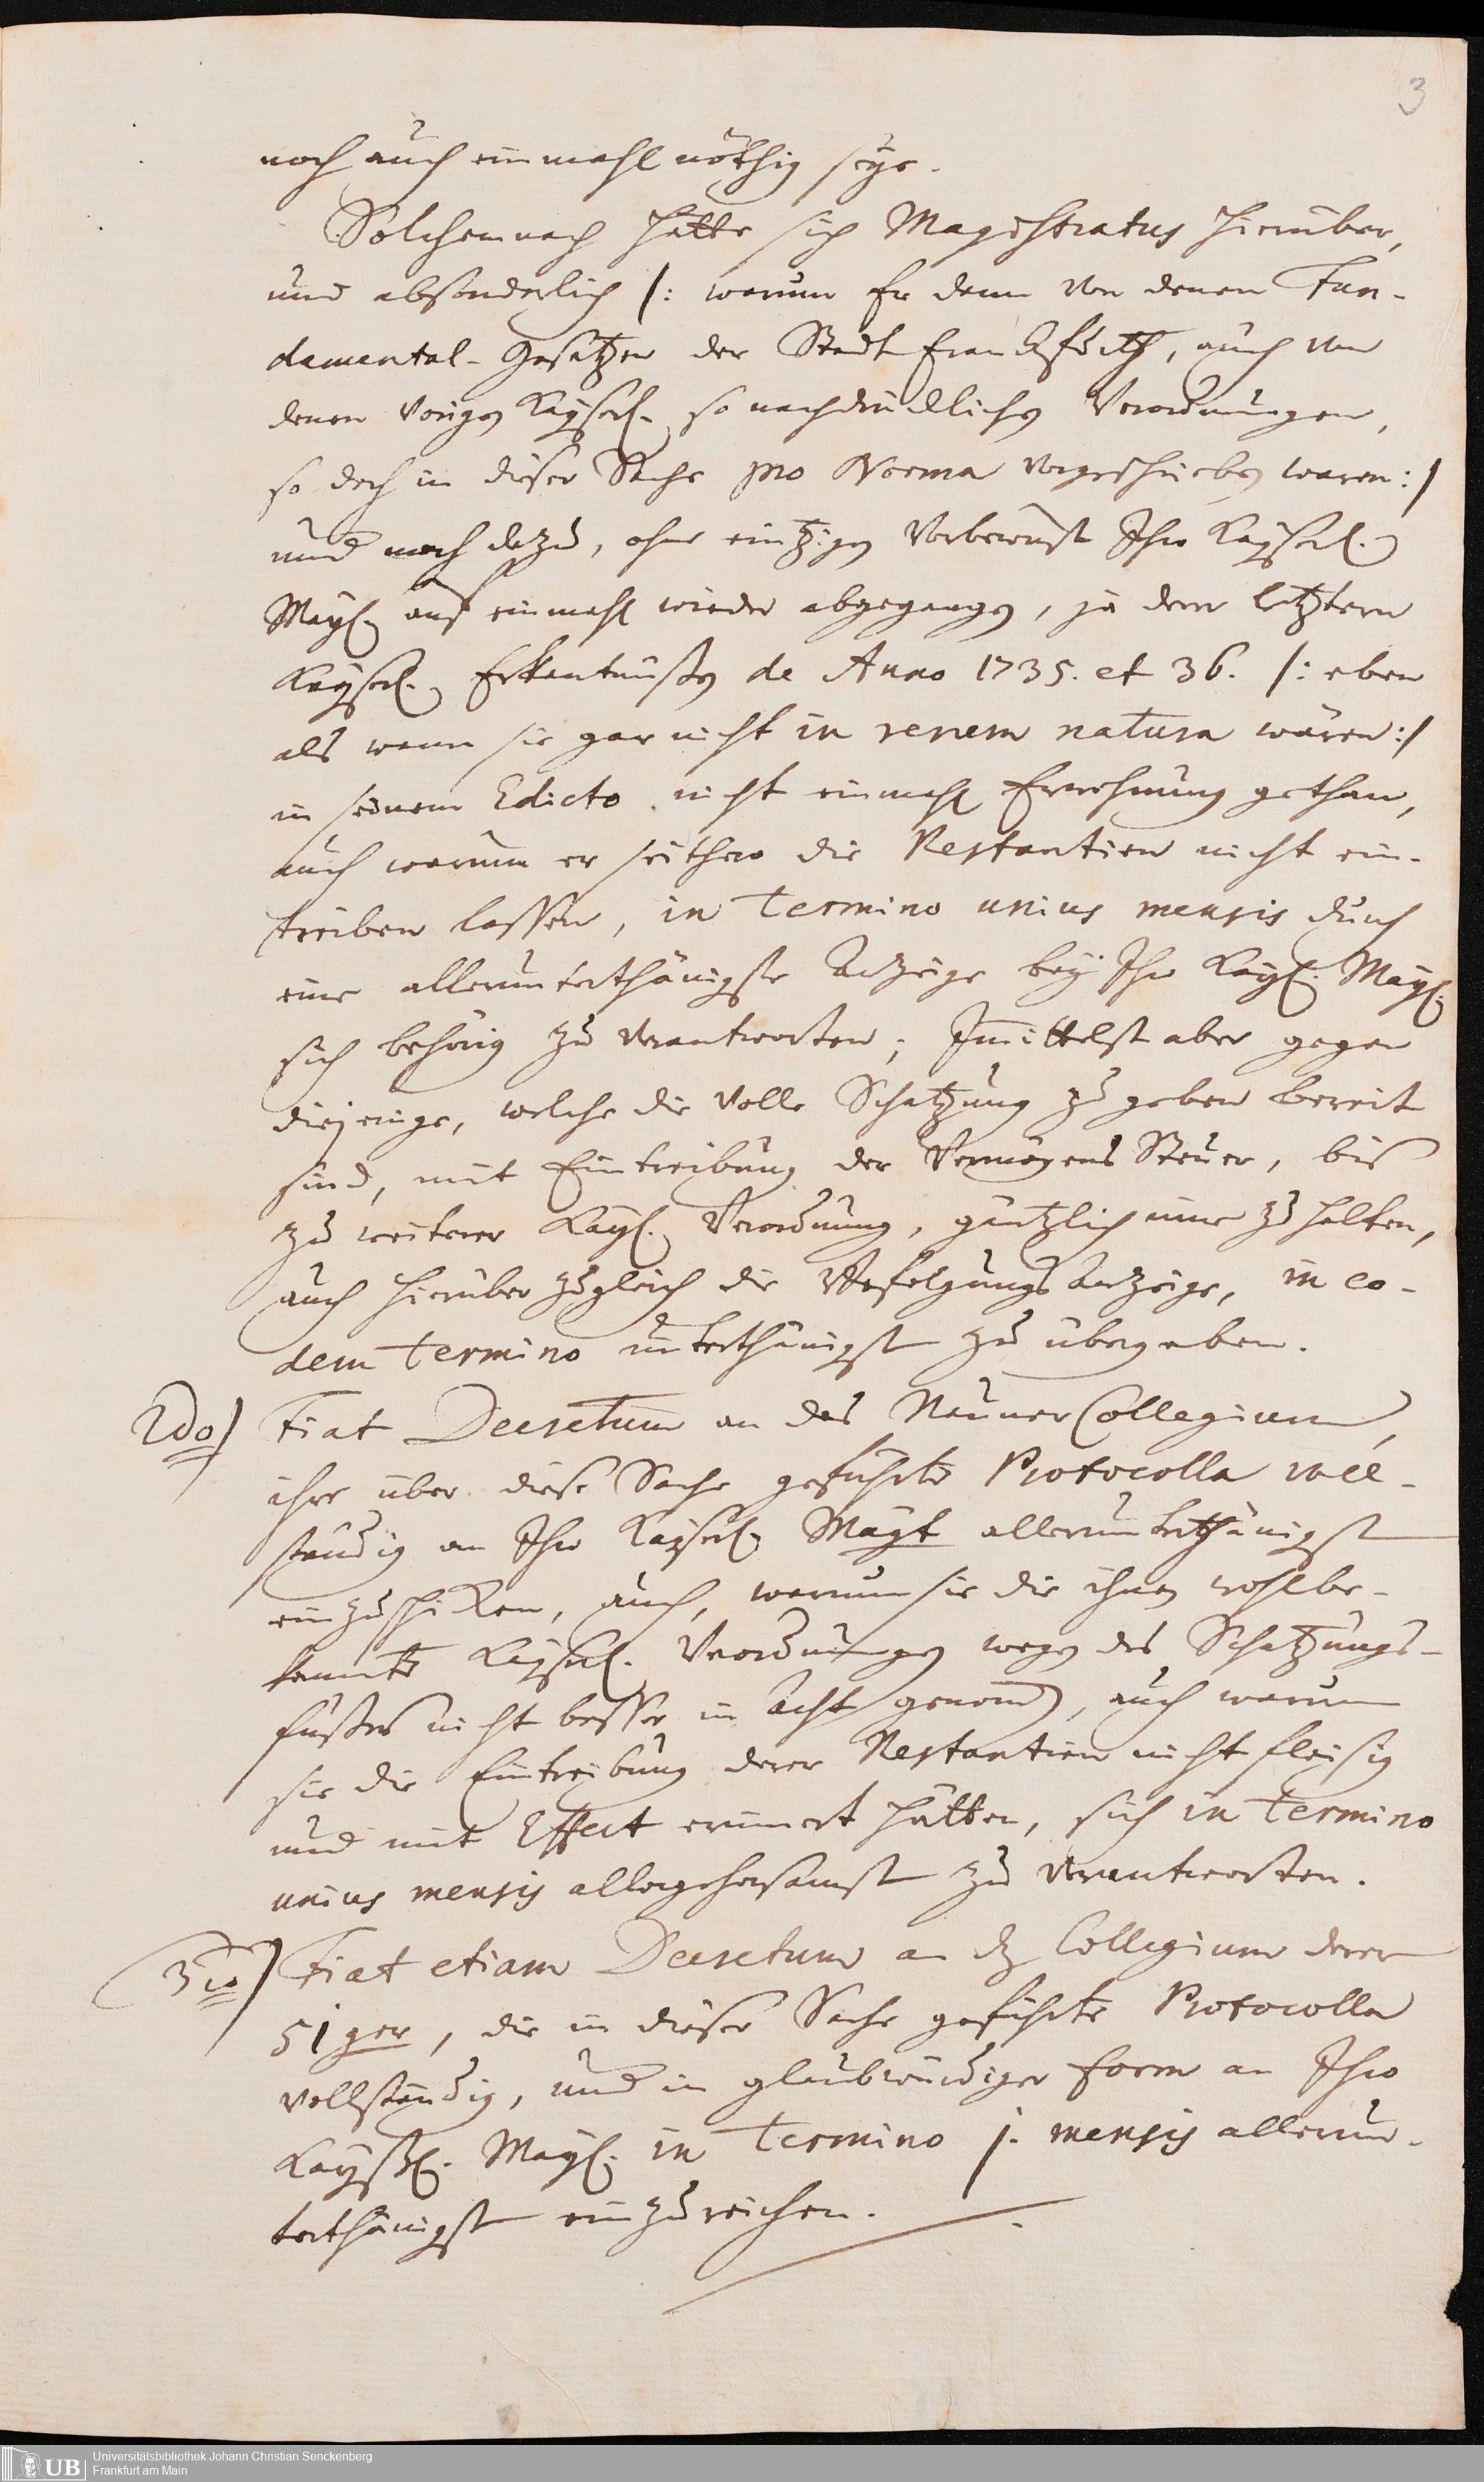 3
noch auch einmahl nöthig seye.
Solchemnach hätte sich Magistratus hierüber,
und absonderlich /: warum Er denn von denen Fun-
damental-Gesätzen der Stadt Franckfurth, auch von
denen vorigen Kayserl. so nachdrücklichen Verordnungen,
so doch in dieser Sache pro Norma vorgeschrieben waren :/
und noch dazu, ohne eintzigen Vorbewust Ihro Kayserl.
Mayt. auf einmahl wieder abgegangen, ja derer letztern
Kayserl. Erkentnüßen de Anno 1735. et 36. /: eben
als wenn sie gar nicht in rerum natura wären :/
in seinem Edicto nicht einmahl Erwehnung gethan,
auch warum er seithero die Restantien nicht ein-
treiben lassen, in termino unius mensis durch
eine allerunterthänigste Anzeige bey Ihro Kayl. Mayt.
sich behörig zu verantworten; Immittelst aber gegen
diejenige, welche die volle Schatzung zu geben bereit
sind, mit Eintreibung der Vermögens Steuer, bis
zu weiterer Kayl. Verordnung, gäntzlich inne zu halten,
auch hierüber zugleich die Befolgungs Anzeige, in eo-
dem termino unterthänigst zu übergeben.
2do) Fiat Decretum an das Neuner Collegium,
ihre über diese Sache geführte Protocolla voll-
ständig an Ihro Kayserl. Mayt allerunterthänigst
einzuschicken, auch, warum sie die ihnen wohlbe-
kannte Kayserl. Verordnungen wegen des Schatzungs-
fußes nicht besser in Acht genommen, auch warum
sie die Eintreibung derer Restantien nicht fleisig
und mit Effect erinnert hätten, sich in termino
unius mensis allergehorsamst zu verantworten.
3io) Fiat etiam Decretum an das Collegium derer
51ger, die in dieser Sache geführte Protocolla
vollständig, und in glaubwürdiger Form an Ihro
Kayserl. Mayt. in termino j. mensis allerun-
terthänigst einzureichen.
UB
Universitätsbibliothek Johann Christian Senckenberg
Frankfurt am Main